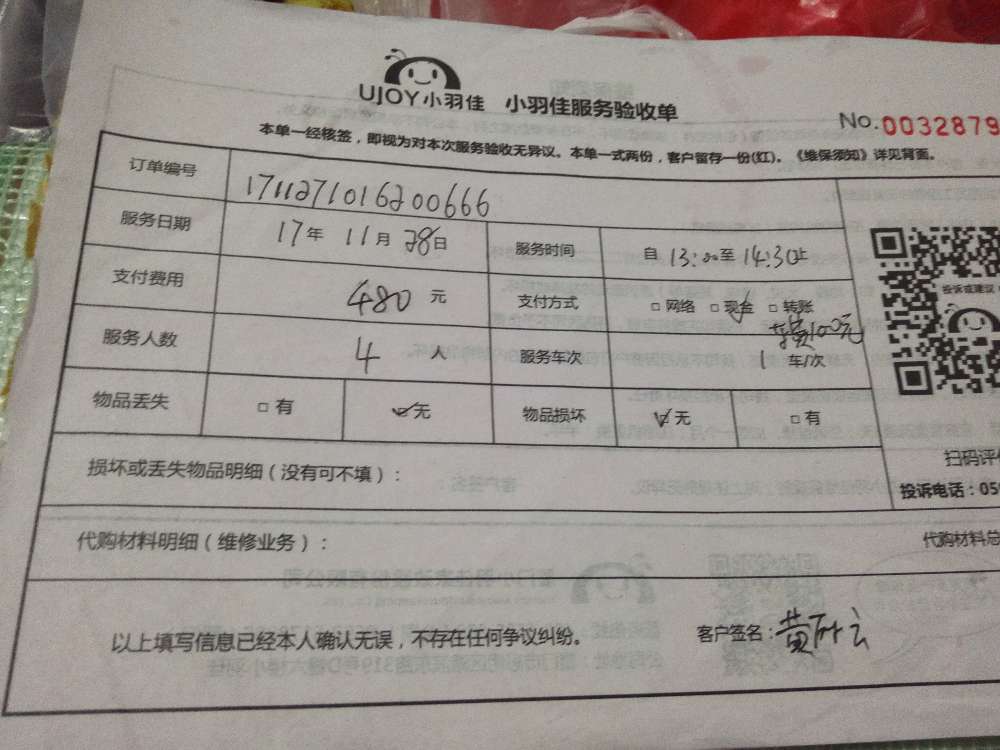 UJOY小羽佳 小羽佳服务验收单
No.0032879
本单一经核签，即视为对本次服务验收无异议。本单一式两份，客户留存一份(红)。《维保须知》详见背面。
订单编号 1711271016200666
服务日期 17年 11月 28日 服务时间 自 13:00至 14:30止
支付费用 480 元 支付方式 □ 网络 □ 现金 □ 转账
100元
服务人数 4 人 服务车次 1 车/次
物品丢失 □ 有 ☑无 物品损坏 ☑无 □ 有
投诉或建议
损坏或丢失物品明细（没有可不填）：
扫码评
投诉电话：05
代购材料明细（维修业务）：
代购材料总
以上填写信息已经本人确认无误，不存在任何争议纠纷。 客户签名：黄